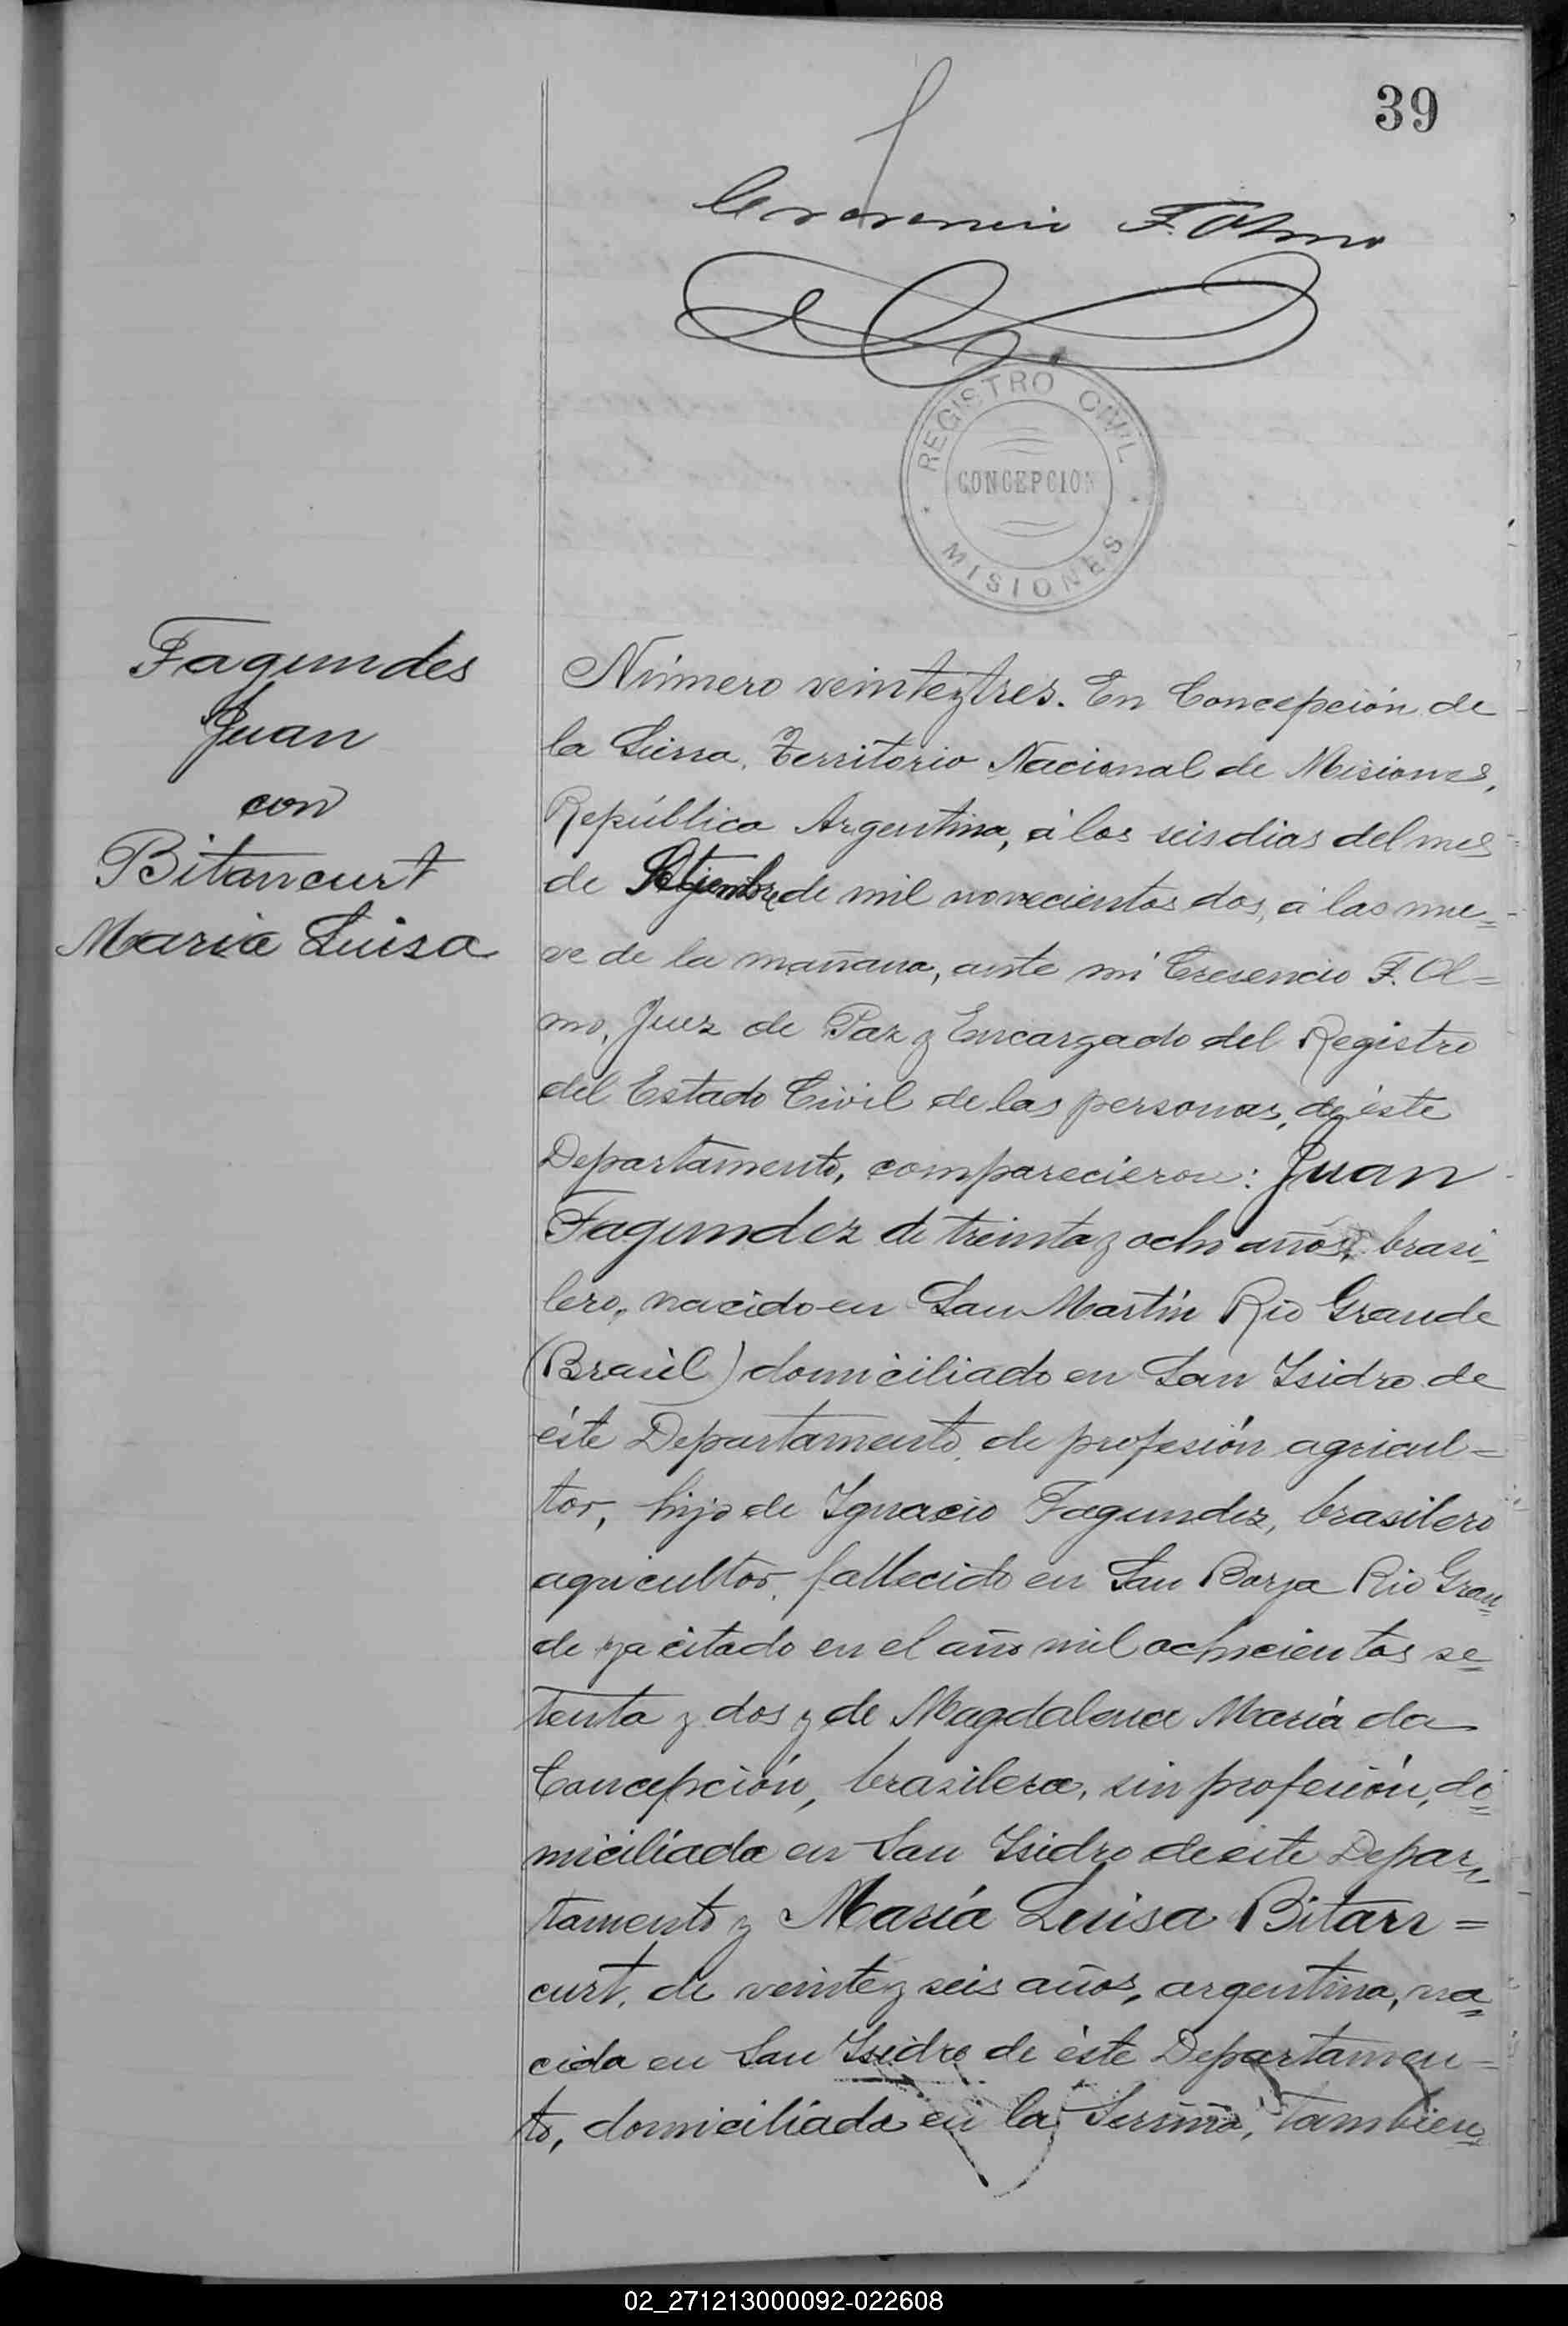 39
Cresencio F. Olmo
REGISTRO CIVIL
CONCEPCION
MISIONES
Fagundes
Juan
con
Bitancurt
María Luisa
Número veinteytres. En Concepción de
la Sierra, Territorio Nacional de Misiones,
República Argentina, á los seis dias del mes
de Setiembre de mil novecientos dos, á las nue=
ve de la mañana, ante mi Cresencio F. Ol=
mo, Juez de Paz y Encargado del Registro
del Estado Civil de las personas, de éste
Departamento, comparecieron: Juan
Fagundez de treinta y ocho años, brasi=
lero, nacido en San Martín Rio Grande
(Brasil) domiciliado en San Isidro de
éste Departamento, de profesión agricul=
tor, hijo de Ignacio Fagundez, brasilero
agricultor, fallecido en San Borja Rio Gran=
de ya citado en el año mil ochocientos se=
tenta y dos y de Magdalena María da
Concepción, brasilera, sin profesión, do=
miciliada en San Isidro de este Depar=
tamento y María Luisa Bitan=
curt, de veinte y seis años, argentina, na=
cida en San Isidro de éste Departamen=
to, domiciliada en la también
02_271213000092-022608